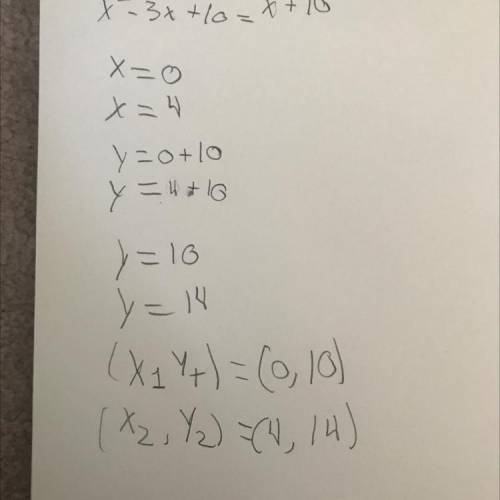 x - 3x + 10 = x + 10
x = 0
x = 4
y = 0 + 10
y = 4 + 10
y = 10
y = 14
(x1 y1) = (0, 10)
(x2, y2) = (4, 14)